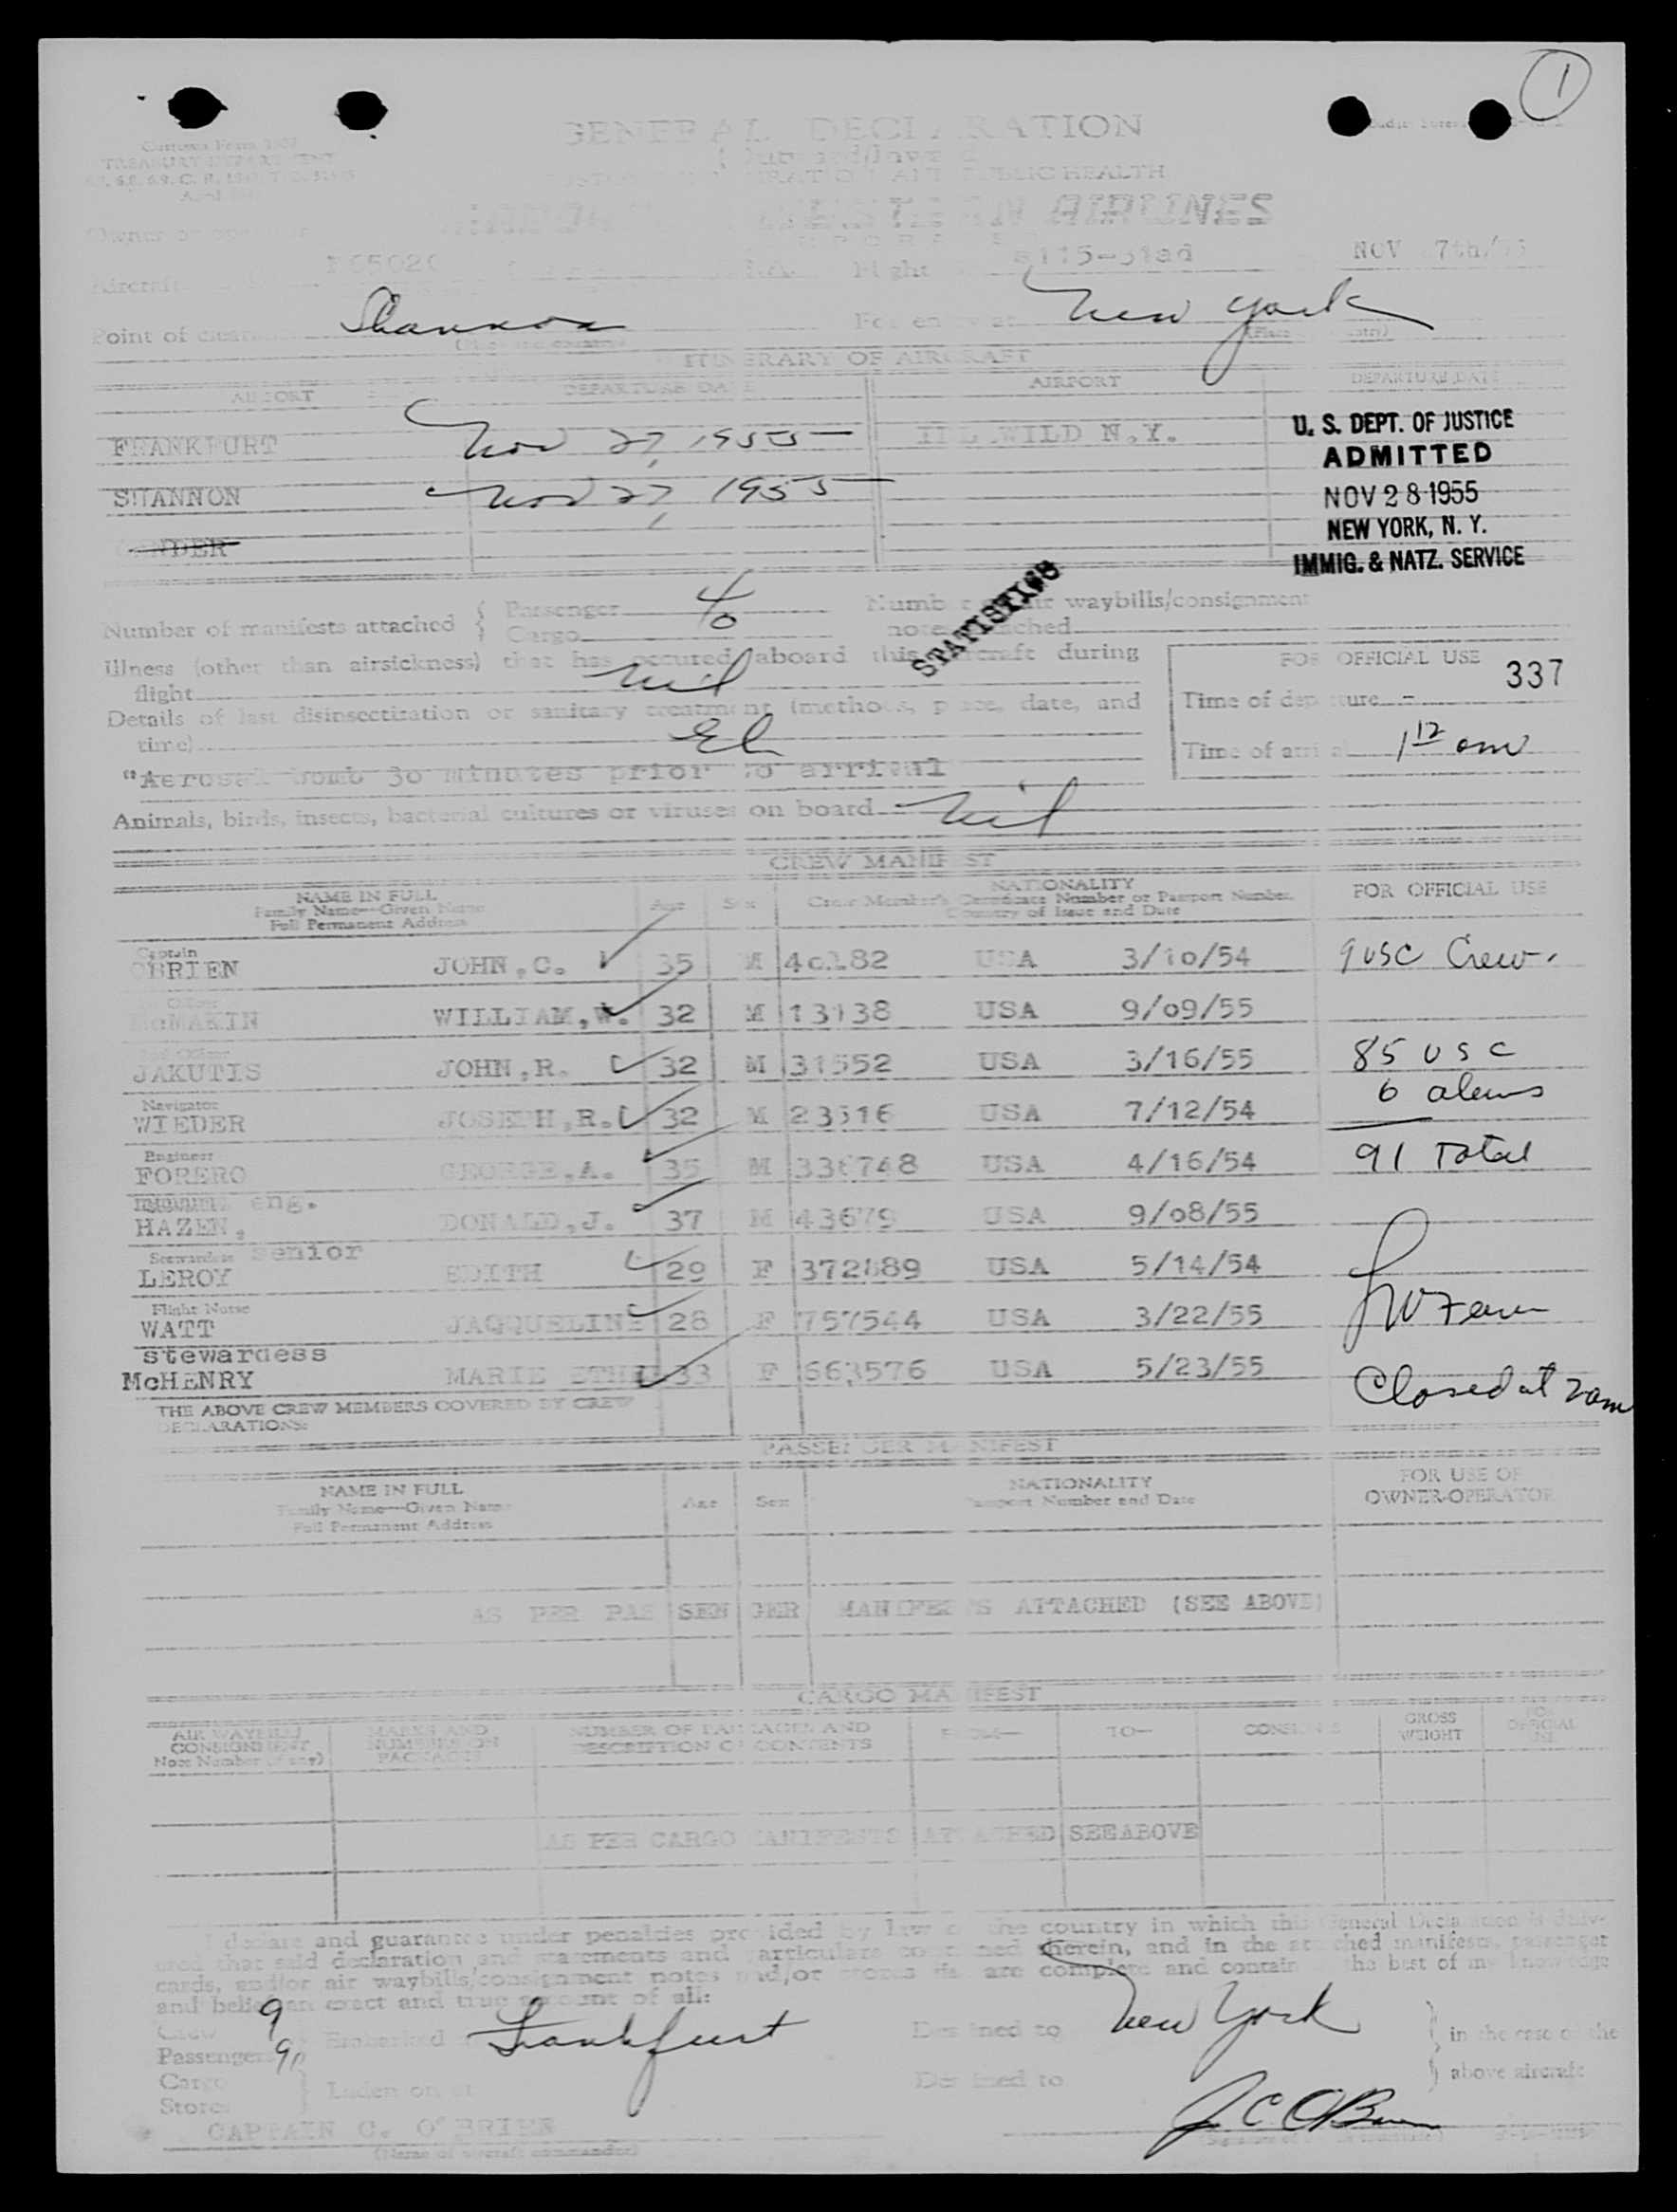 1
GENERAL DECLARATION
TREASURY DEPARTMENT
PUBLIC HEALTH
AIRLINES
Owner or
Aircraft Flight NOV 7th/
Point of Shannon For entry at New York
ITINERARY OF AIRCRAFT
AIRPORT DEPARTURE DATE AIRPORT DEPARTURE DATE
FRANKFURT Nov 27, 1955 WILD N.Y.
SHANNON Nov 27, 1955
U. S. DEPT. OF JUSTICE
ADMITTED
NOV 28 1955
NEW YORK, N. Y.
IMMIG. & NATZ. SERVICE
STATISTICS
Number of manifests attached { Passenger 4 waybills/consignment
Cargo 0
Illness (other than airsickness) that has occured aboard this aircraft during
flight nil
FOR OFFICIAL USE 337
Time of departure -
Details of last disinsectization or sanitary treatment (methods, place, date, and
time)
Time of arrival 1 12 am
"Aerosal bomb 30 minutes prior to arrival
Animals, birds, insects, bacterial cultures or viruses on board nil
CREW MANIFEST
NAME IN FULL
Family Name—Given Name
Full Permanent Address
Age Sex
NATIONALITY
Crew Member's Certificate Number or Passport Number,
Country of Issue and Date
FOR OFFICIAL USE
Captain
OBRIEN JOHN,C. 35 M USA 3/10/54 9 USC Crew.
McMAKIN WILLIAM,W. 32 M USA 9/09/55
JAKUTIS JOHN,R. 32 M 31552 USA 3/16/55 85 USC
Navigator
WIEDER JOSEPH,R. 32 M 23516 USA 7/12/54 6 aliens
Engineer
FORERO GEORGE,A. 35 M USA 4/16/54 91 Total
eng.
HAZEN, DONALD,J. 37 M 43679 USA 9/08/55
Stewardess senior
LEROY EDITH 29 F USA 5/14/54
Flight Nurse
WATT JAQQUELINE 28 F 757544 USA 3/22/55
stewardess
McHENRY MARIE 33 F 663576 USA 5/23/55
Closed at 2am
THE ABOVE CREW MEMBERS COVERED BY CREW
DECLARATIONS
PASSENGER MANIFEST
NAME IN FULL
Family Name—Given Name
Full Permanent Address
Age Sex
NATIONALITY
Passport Number and Date
FOR USE OF
OWNER-OPERATOR
AS PER PASSENGER MANIFESTS ATTACHED (SEE ABOVE)
CARGO MANIFEST
AIR WAYBILL
CONSIGNMENT
Note Number (if any)
MARKS AND
NUMBERS ON
PACKAGES
NUMBER OF PACKAGES AND
DESCRIPTION OF CONTENTS
FROM— TO— CONSIGNEE
GROSS
WEIGHT
FOR
OFFICIAL
USE
AS PER CARGO MANIFESTS ATTACHED SEE ABOVE
I declare and guarantee under penalties provided by law of the country in which this General Declaration is deliv-
ered that said declaration and statements and particulars contained therein, and in the attached manifests, passenger
cards, and/or air waybills/consignment notes and/or stores list are complete and contain the best of my knowledge
and belief an exact and true account of all:
Crew 9
Passengers 91 Embarked Frankfurt Destined to New York } in the case of the
Cargo
Stores } Laden on at Destined to } above aircraft
J C OBrien
CAPTAIN C. O'BRIEN
(Name of aircraft commander)